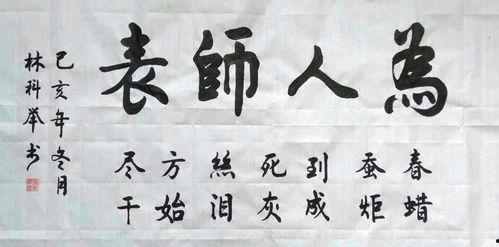 為人師表
春蚕到死絲方尽
蜡炬成灰泪始干
己亥年冬月
林科举书